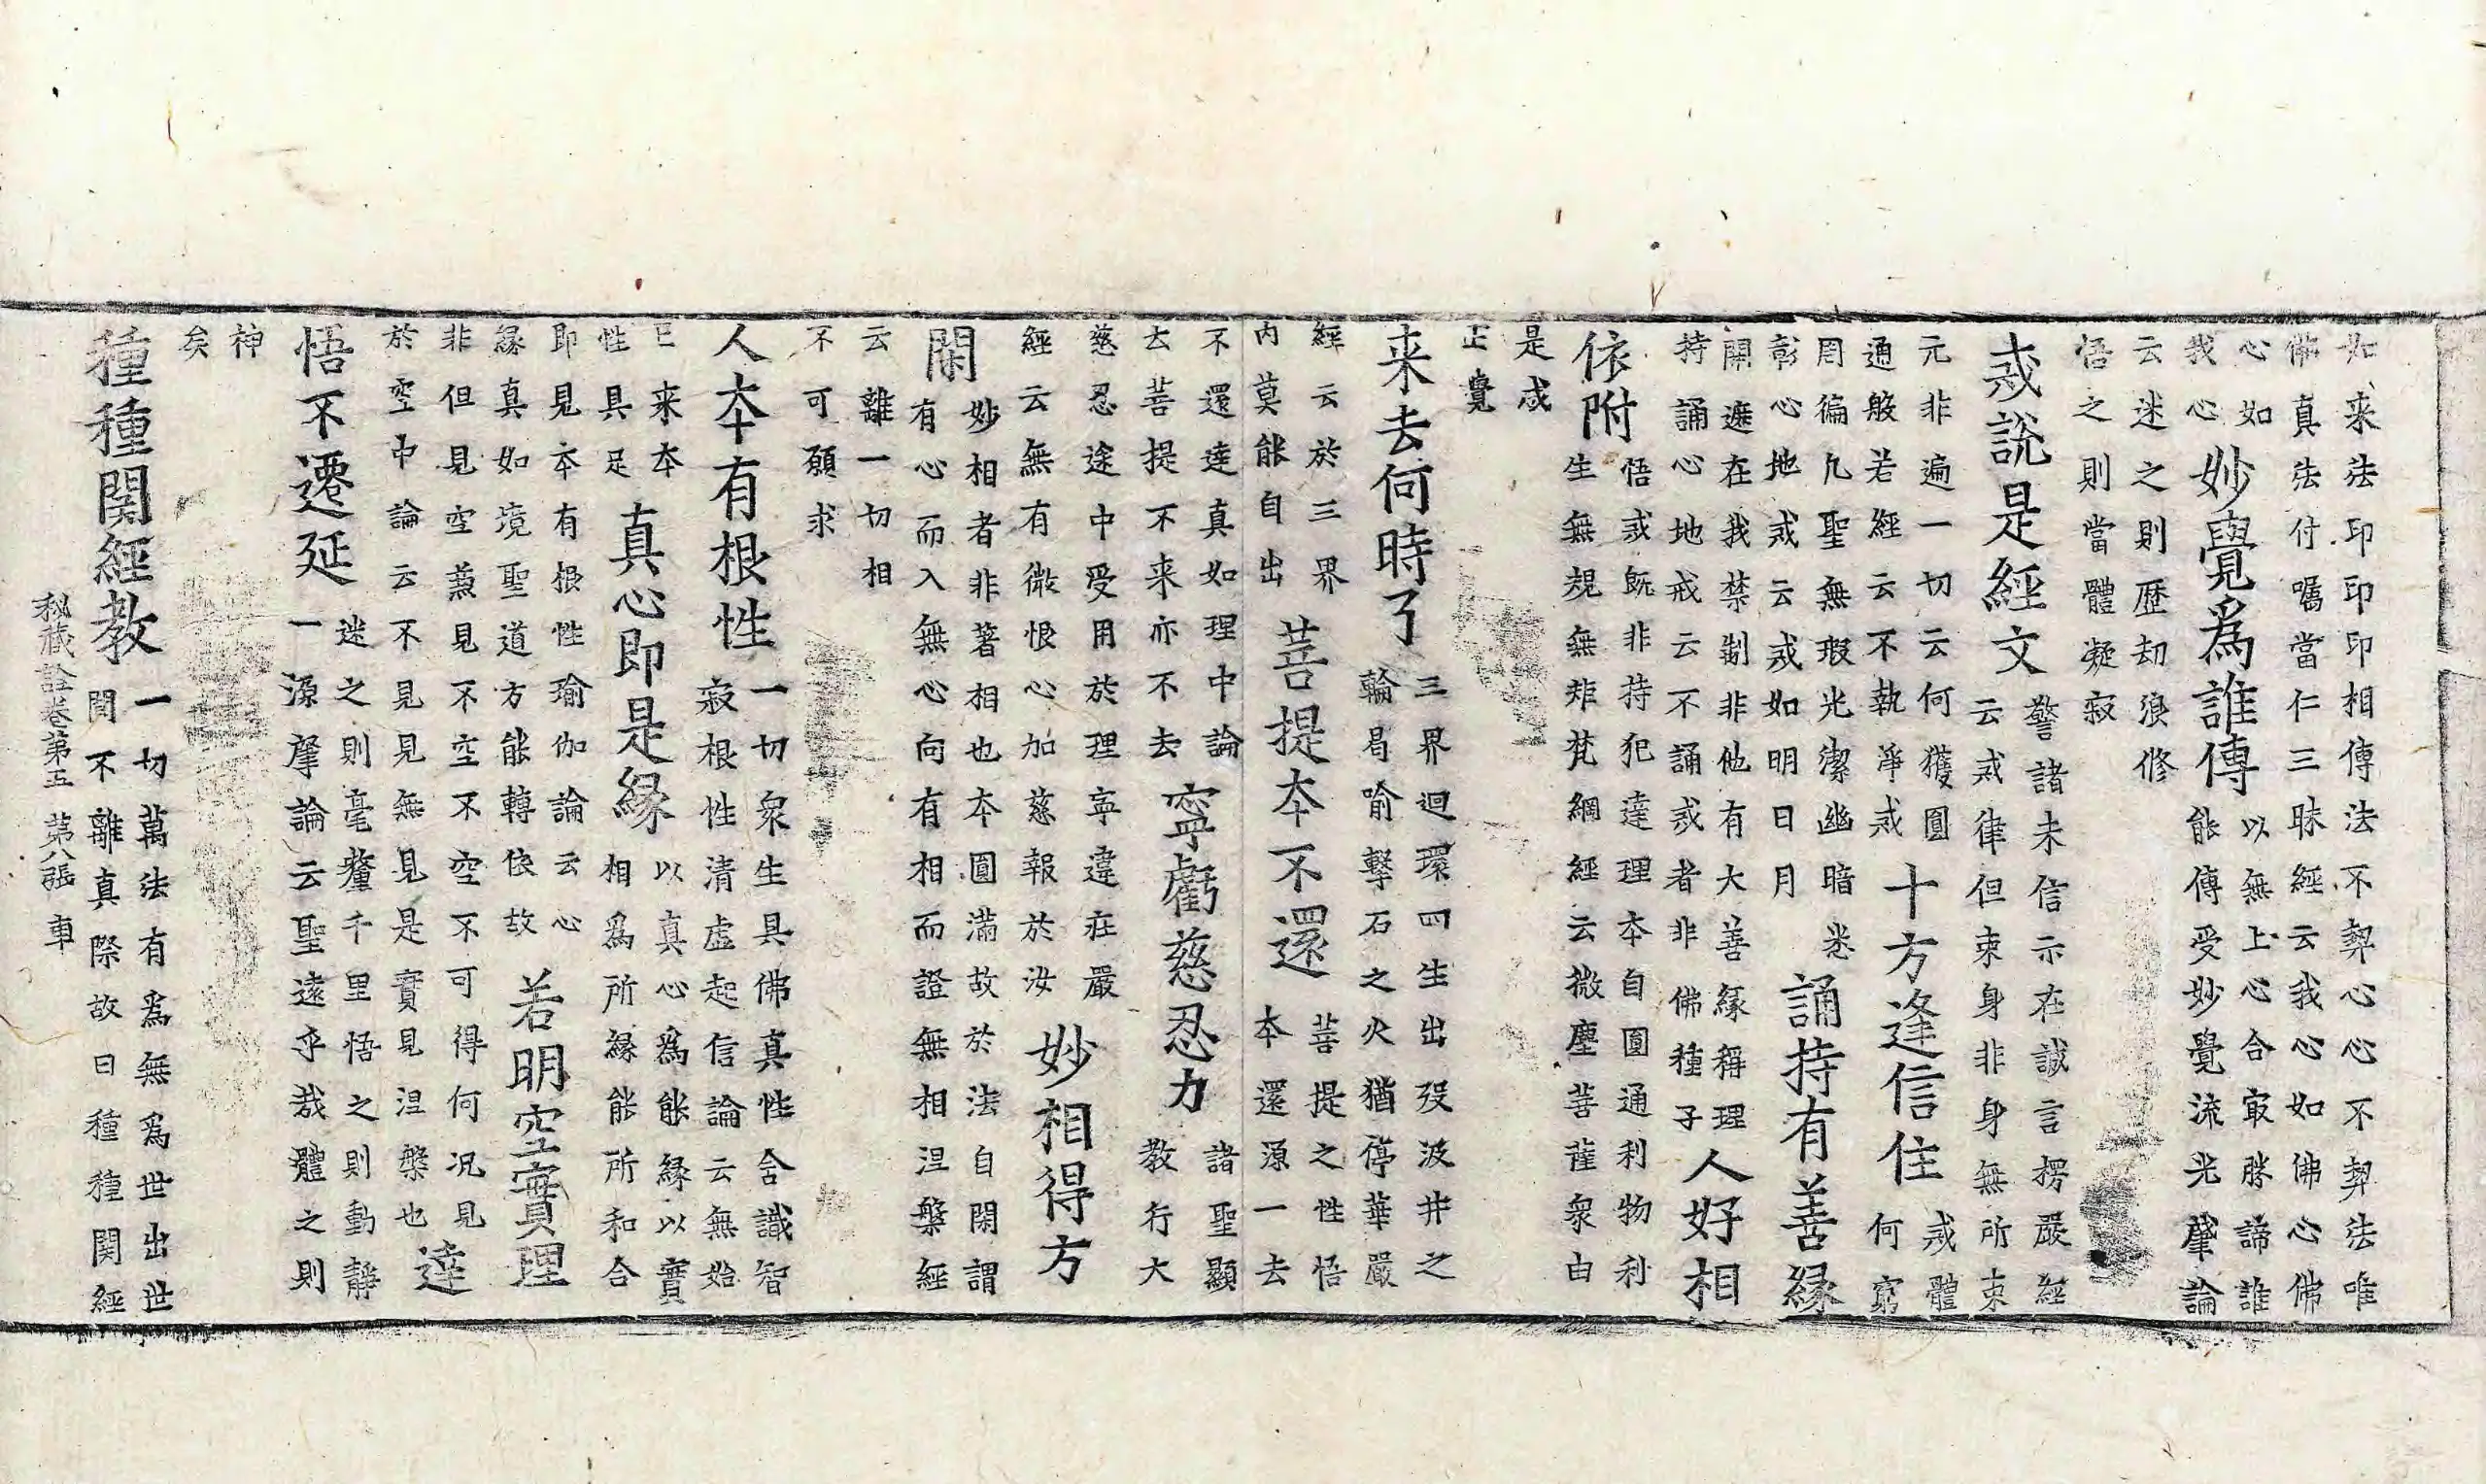 如来法印印印相傳法不契心心不契法唯
佛真法付囑當仁三昧經云我心如佛心佛
心如
我心
妙覺爲誰傳
以無上心合㝡勝諦誰
能傳受妙覺流光肇論
云迷之則歷劫浪修
悟之則當體凝寂
戒說是經文
警諸未信示在誠言楞嚴經
云戒律但束身非身無所束
元非遍一切云何獲圓
通般若經云不執淨戒
十方逢信住
戒體
何窮
周徧凡聖無瑕光潔幽暗悉
彰心地戒云戒如明日月
誦持有善緣
開遮在我禁制非他有大善緣稱理
持誦心地戒云不誦戒者非佛種子
人好相
依附
悟戒既非持犯達理本自圓通利物利
生無規無矩梵網經云微塵菩薩衆由
是成
正覺
来去何時了
三界迴環四生出殁汲井之
輪曷喻擊石之火猶停華嚴
經云於三界
内莫能自出
菩提本不還
菩提之性悟
本還源一去
不還達真如理中論
云菩提不来亦不去
寧虧慈忍力
諸聖顯
教行大
慈忍途中受用於理寧違莊嚴
經云無有微恨心加慈報於汝
妙相得方
閑
妙相者非著相也本圓滿故於法自閑謂
有心而入無心向有相而證無相涅槃經
云離一切相
不可願求
人本有根性
一切衆生具佛真性含識智
寂根性清虛起信論云無始
已来本
性具足
真心即是緣
以真心爲能緣以實
相爲所緣能所和合
即見本有根性瑜伽論云心
緣真如境聖道方能轉依故
若明空實理
非但見空兼見不空不空不可得何況見
於空中論云不見見無見見是實見涅槃也
達
悟不遷延
迷之則毫釐千里悟之則動靜
一源肇論云聖遠乎哉體之則
神
矣
種種関經教
一切萬法有爲無爲世出世
間不離真際故曰種種関經
秘藏詮卷第五 第八張 車